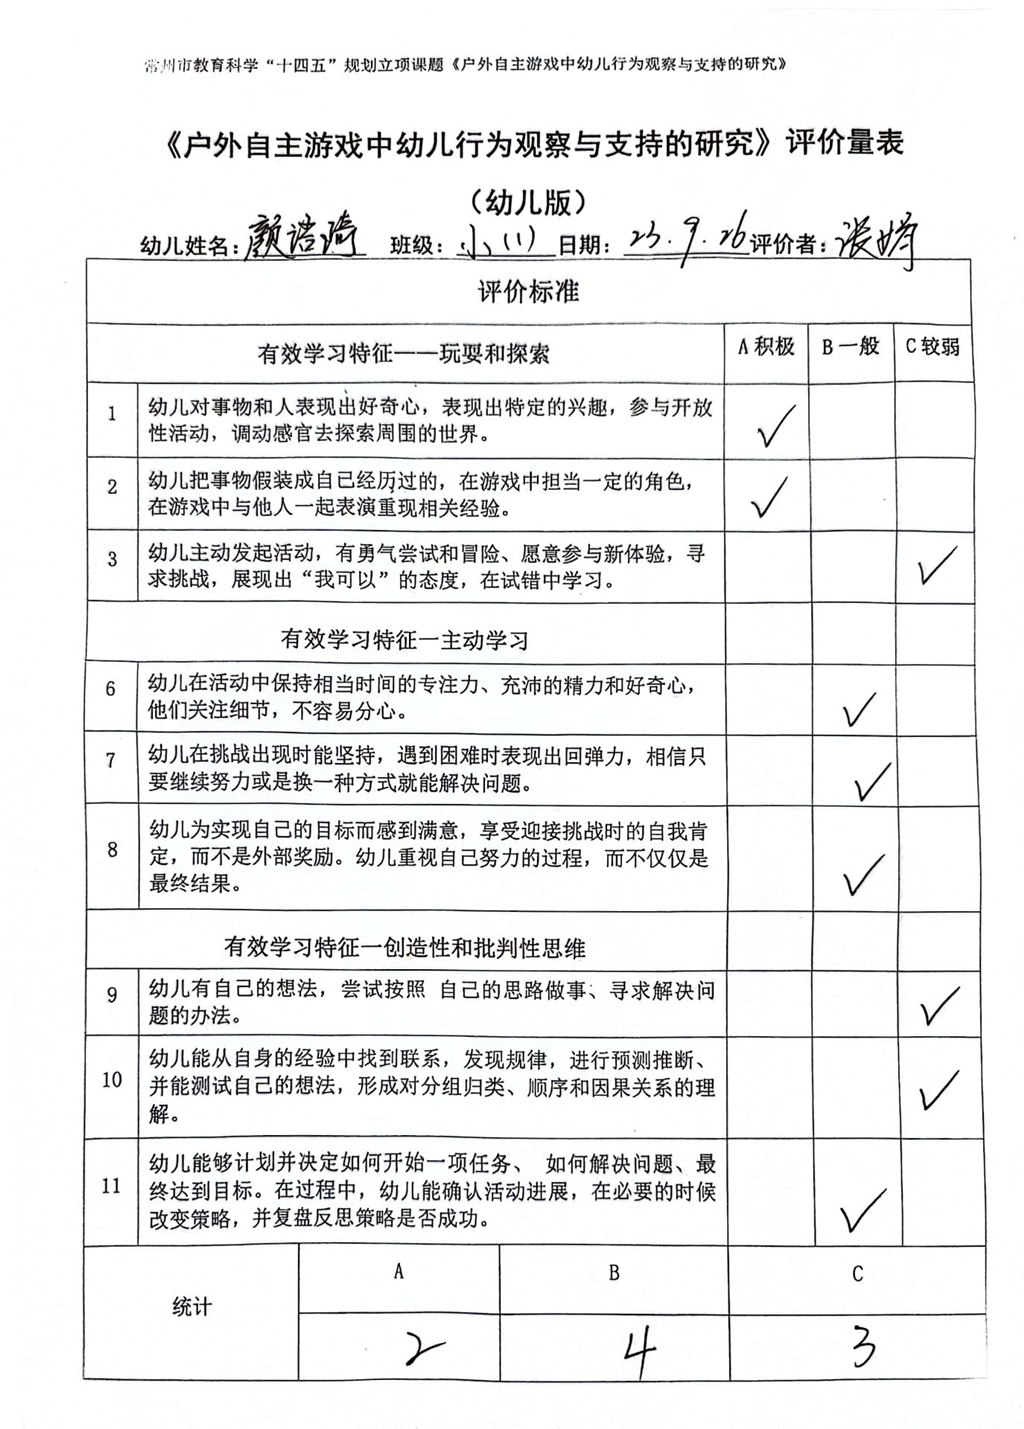 常州市教育科学“十四五”规划立项课题《户外自主游戏中幼儿行为观察与支持的研究》
《户外自主游戏中幼儿行为观察与支持的研究》评价量表
（幼儿版）
幼儿姓名：颜诺琦 班级：小（1） 日期：23.9.26 评价者：张婷
评价标准
有效学习特征——玩耍和探索 A 积极 B 一般 C 较弱
1 幼儿对事物和人表现出好奇心，表现出特定的兴趣，参与开放
性活动，调动感官去探索周围的世界。 ✓
2 幼儿把事物假装成自己经历过的，在游戏中担当一定的角色，
在游戏中与他人一起表演重现相关经验。 ✓
3 幼儿主动发起活动，有勇气尝试和冒险、愿意参与新体验，寻
求挑战，展现出“我可以”的态度，在试错中学习。 ✓
有效学习特征—主动学习
6 幼儿在活动中保持相当时间的专注力、充沛的精力和好奇心，
他们关注细节，不容易分心。 ✓
7 幼儿在挑战出现时能坚持，遇到困难时表现出回弹力，相信只
要继续努力或是换一种方式就能解决问题。 ✓
8 幼儿为实现自己的目标而感到满意，享受迎接挑战时的自我肯
定，而不是外部奖励。幼儿重视自己努力的过程，而不仅仅是
最终结果。 ✓
有效学习特征—创造性和批判性思维
9 幼儿有自己的想法，尝试按照 自己的思路做事、寻求解决问
题的办法。 ✓
10 幼儿能从自身的经验中找到联系，发现规律，进行预测推断、
并能测试自己的想法，形成对分组归类、顺序和因果关系的理
解。 ✓
11 幼儿能够计划并决定如何开始一项任务、 如何解决问题、最
终达到目标。在过程中，幼儿能确认活动进展，在必要的时候
改变策略，并复盘反思策略是否成功。 ✓
统计 A B C
2 4 3